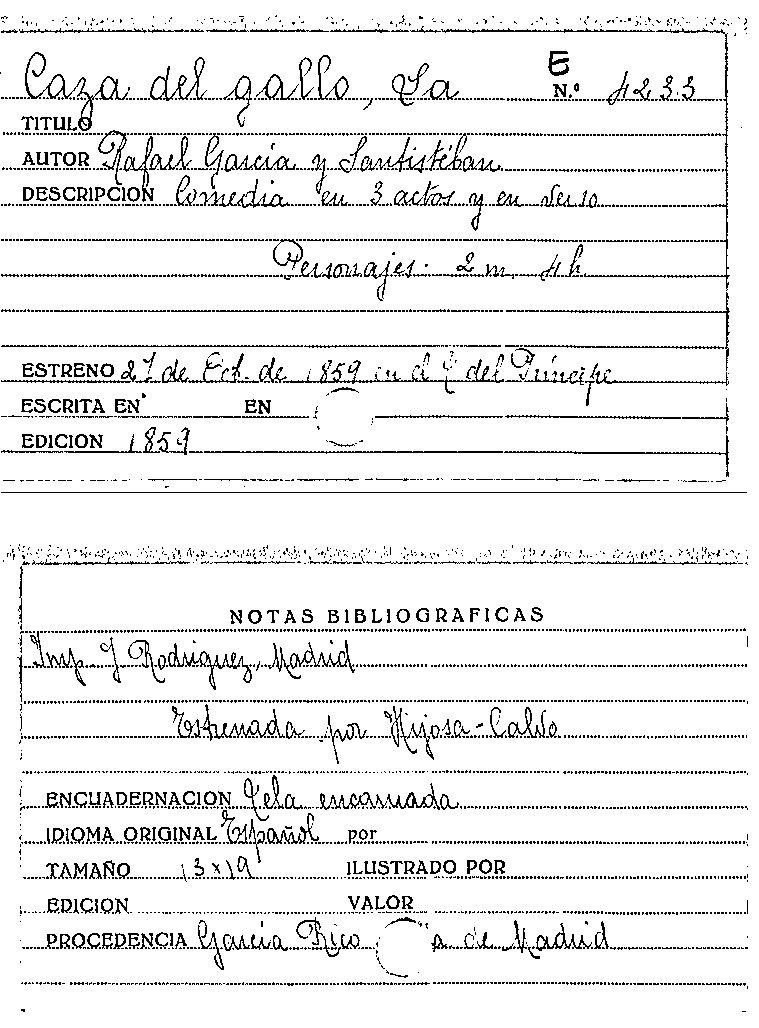 E
Caza del gallo, La N.º 4233
TITULO
AUTOR Rafael García y Santistéban
DESCRIPCION Comedia en 3 actos y en verso
Personajes. 2 m. 4 h
ESTRENO 27 de Oct. de 1859 en el T. del Príncipe
ESCRITA EN EN
EDICION 1859
NOTAS BIBLIOGRAFICAS
Imp. J. Rodriguez, Madrid
Estrenada por Hijosa-Calvo
ENCUADERNACION Tela encarnada
IDIOMA ORIGINAL Español por
TAMAÑO 13x19 ILUSTRADO POR
EDICION VALOR
PROCEDENCIA García Rico a de Madrid